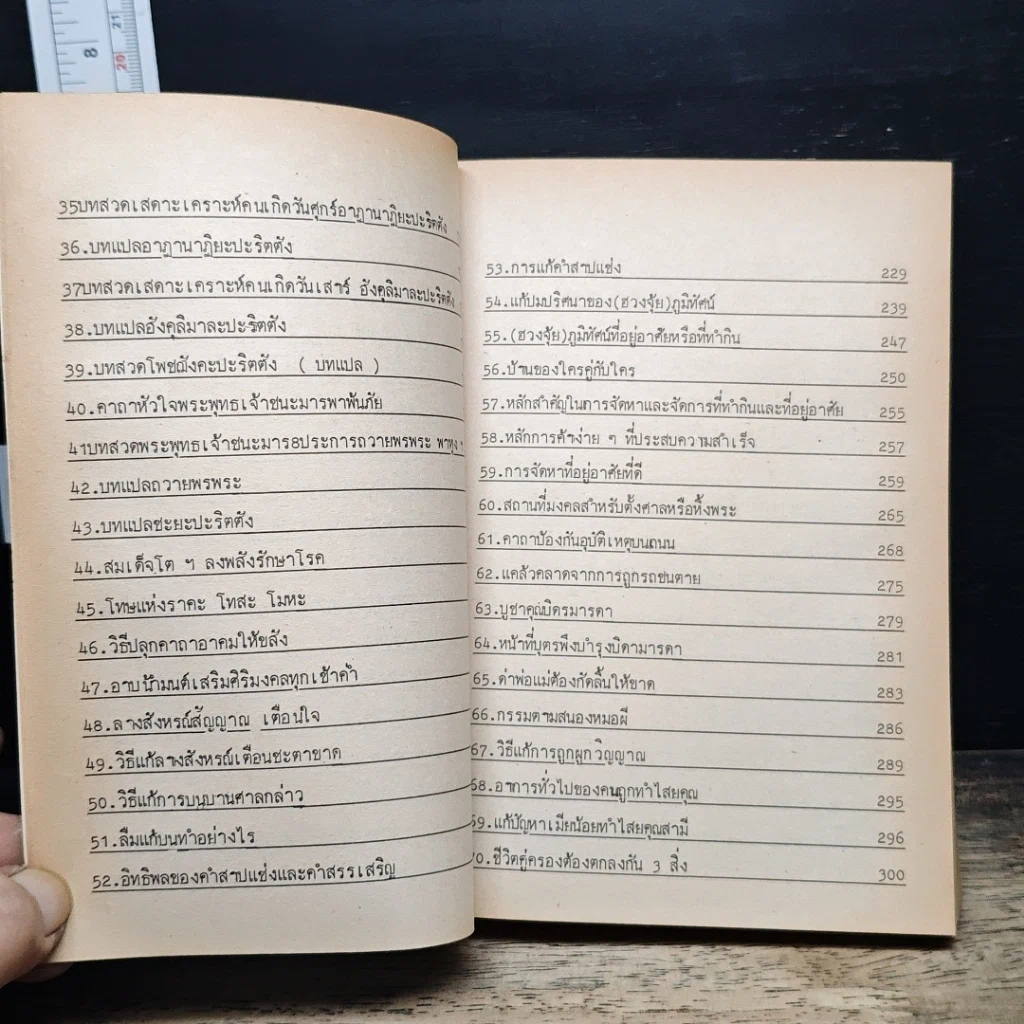 8
21
20
35บทสวดเสดาะเคราะห์คนเกิดวันศุกร์อาฏานาฏิยะปะริตตัง
36.บทแปลอาฏานาฏิยะปะริตตัง
37บทสวดเสดาะเคราะห์คนเกิดวันเสาร์ อังคุลิมาละปะริตตัง
38.บทแปลอังคุลิมาละปะริตตัง
39.บทสวดโพชฌังคะปะริตตัง ( บทแปล )
40.คาถาหัวใจพระพุทธเจ้าชนะมารพาพ้นภัย
41บทสวดพระพุทธเจ้าชนะมาร8ประการถวายพรพระ พาหุง
42.บทแปลถวายพรพระ
43.บทแปลชะยะปะริตตัง
44.สมเด็จโต ฯ ลงพลังรักษาโรค
45.โทษแห่งราคะ โทสะ โมหะ
46.วิธีปลุกคาถาอาคมให้ขลัง
47.อาบน้ำมนต์เสริมศิริมงคลทุกเช้าค่ำ
48.ลางสังหรณ์สัญญาณ เตือนใจ
49.วิธีแก้ลางสังหรณ์เตือนชะตาขาด
50.วิธีแก้การบนบานศาลกล่าว
51.ลืมแก้บนทำอย่างไร
52.อิทธิพลของคำสาปแช่งและคำสรรเสริญ
53.การแก้คำสาปแช่ง 229
54.แก้ปมปริศนาของ(ฮวงจุ้ย)ภูมิทัศน์ 239
55.(ฮวงจุ้ย)ภูมิทัศน์ที่อยู่อาศัยหรือที่ทำกิน 247
56.บ้านของใครคู่กับใคร 250
57.หลักสำคัญในการจัดหาและจัดการที่ทำกินและที่อยู่อาศัย 255
58.หลักการค้าง่าย ๆ ที่ประสบความสำเร็จ 257
59.การจัดหาที่อยู่อาศัยที่ดี 259
60.สถานที่มงคลสำหรับตั้งศาลหรือหิ้งพระ 265
61.คาถาป้องกันอุบัติเหตุบนถนน 268
62.แคล้วคลาดจากการถูกรถชนตาย 275
63.บูชาคุณบิดรมารดา 279
64.หน้าที่บุตรพึงบำรุงบิดามารดา 281
65.ด่าพ่อแม่ต้องกัดลิ้นให้ขาด 283
66.กรรมตามสนองหมอผี 286
67.วิธีแก้การถูกผูกวิญญาณ 289
68.อาการทั่วไปของคนถูกทำไสยคุณ 295
59.แก้ปัญหาเมียน้อยทำไสยคุณสามี 296
70.ชีวิตคู่ครองต้องตกลงกัน 3 สิ่ง 300